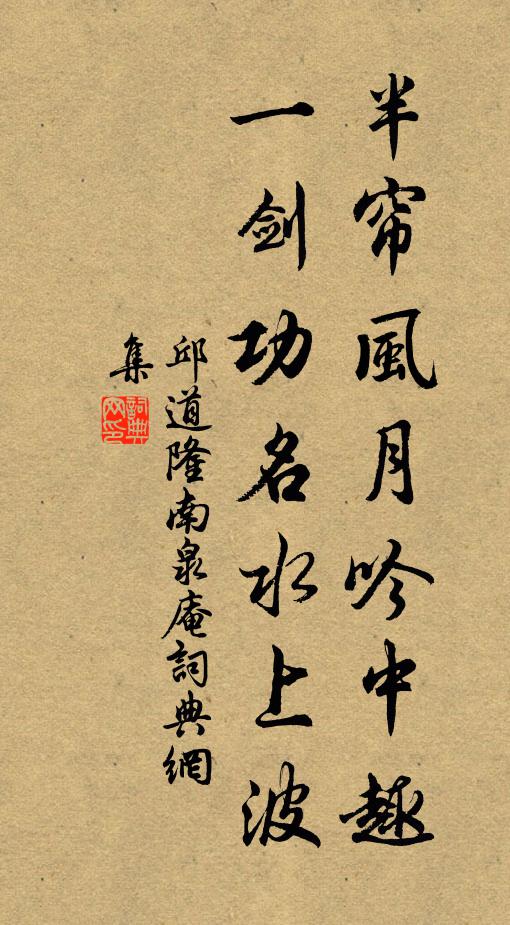 半帘風月吟中趣
一剑功名水上波
邱道隆南泉庵詞典網
集
詞典網印